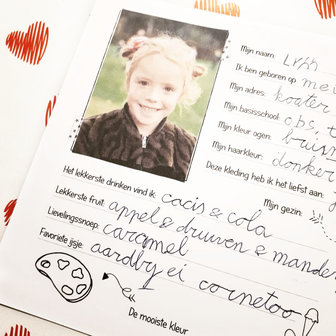 Mijn naam
Ik ben geboren op me
Mijn adres: koater
Mijn basisschool: obs.
Mijn kleur ogen: bruin
Mijn haarkleur: donker
Deze kleding heb ik het liefst aan:
Mijn gezin:
Het lekkerste drinken vind ik: cacis & cola
Lekkerste fruit: appel & druuven & mande
Lievelingssnoep: caramel
Favoriete ijsje: aardby ei cornetoo
De mooiste kleur